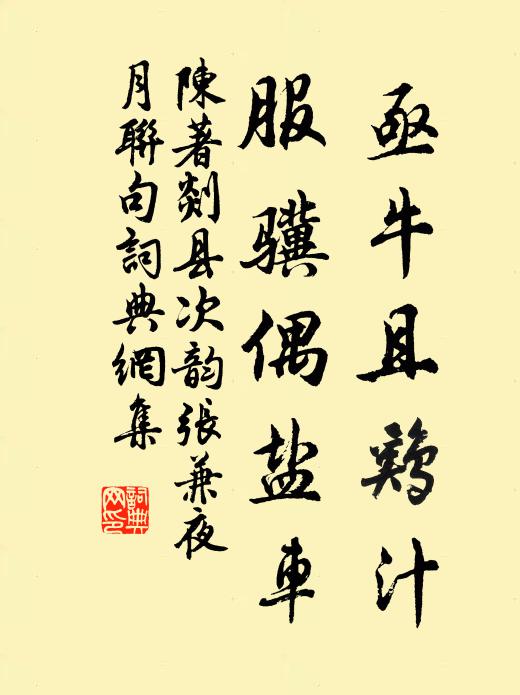 亟牛且鷄汁
服骥偶盐車
陳著剡县次韵張兼夜
月聯句詞典網集
詞典网印